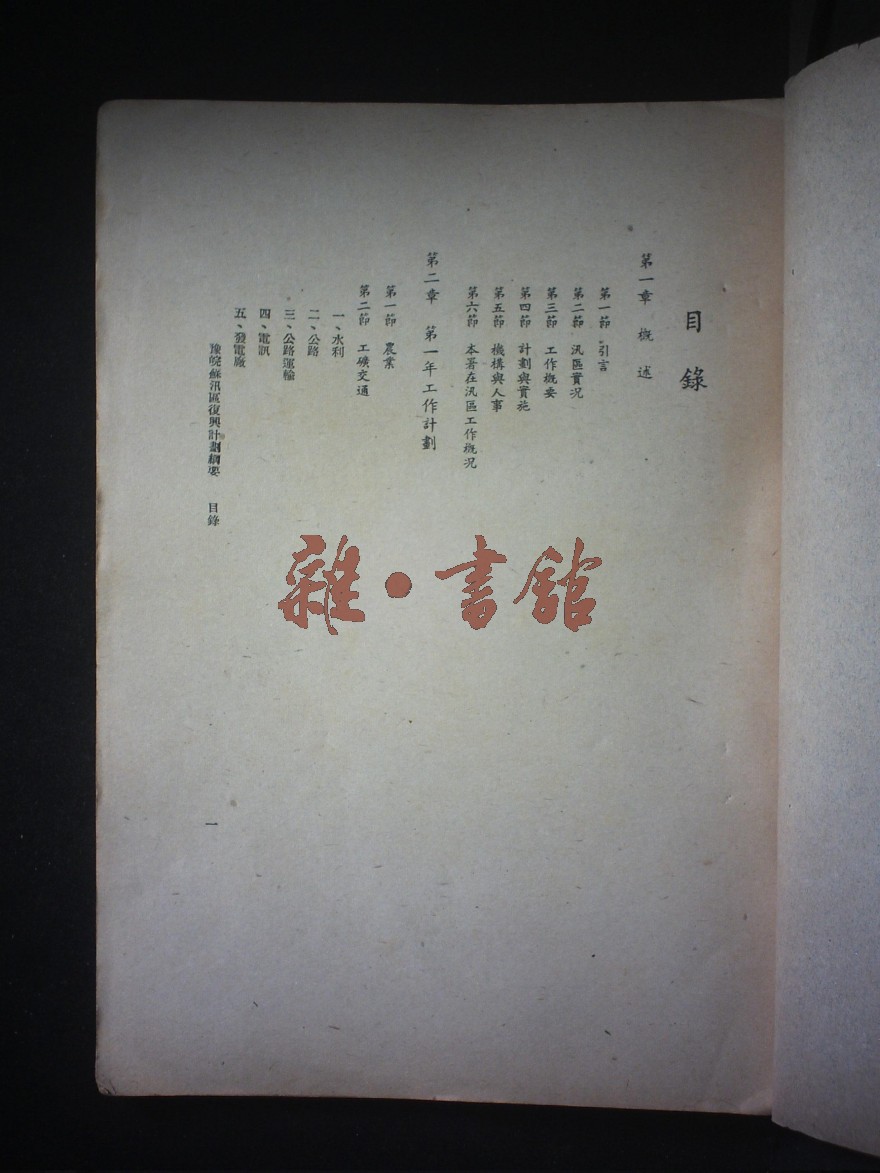 目錄
第一章 概述
第一節 引言
第二節 汎區實況
第三節 工作概要
第四節 計劃與實施
第五節 機構與人事
第六節 本署在汎區工作概況
第二章 第一年工作計劃
第一節 農業
第二節 工礦交通
一、水利
二、公路
三、公路運輸
四、電訊
五、發電廠
豫皖蘇汎區復興計劃綱要 目錄
一
雜·書館